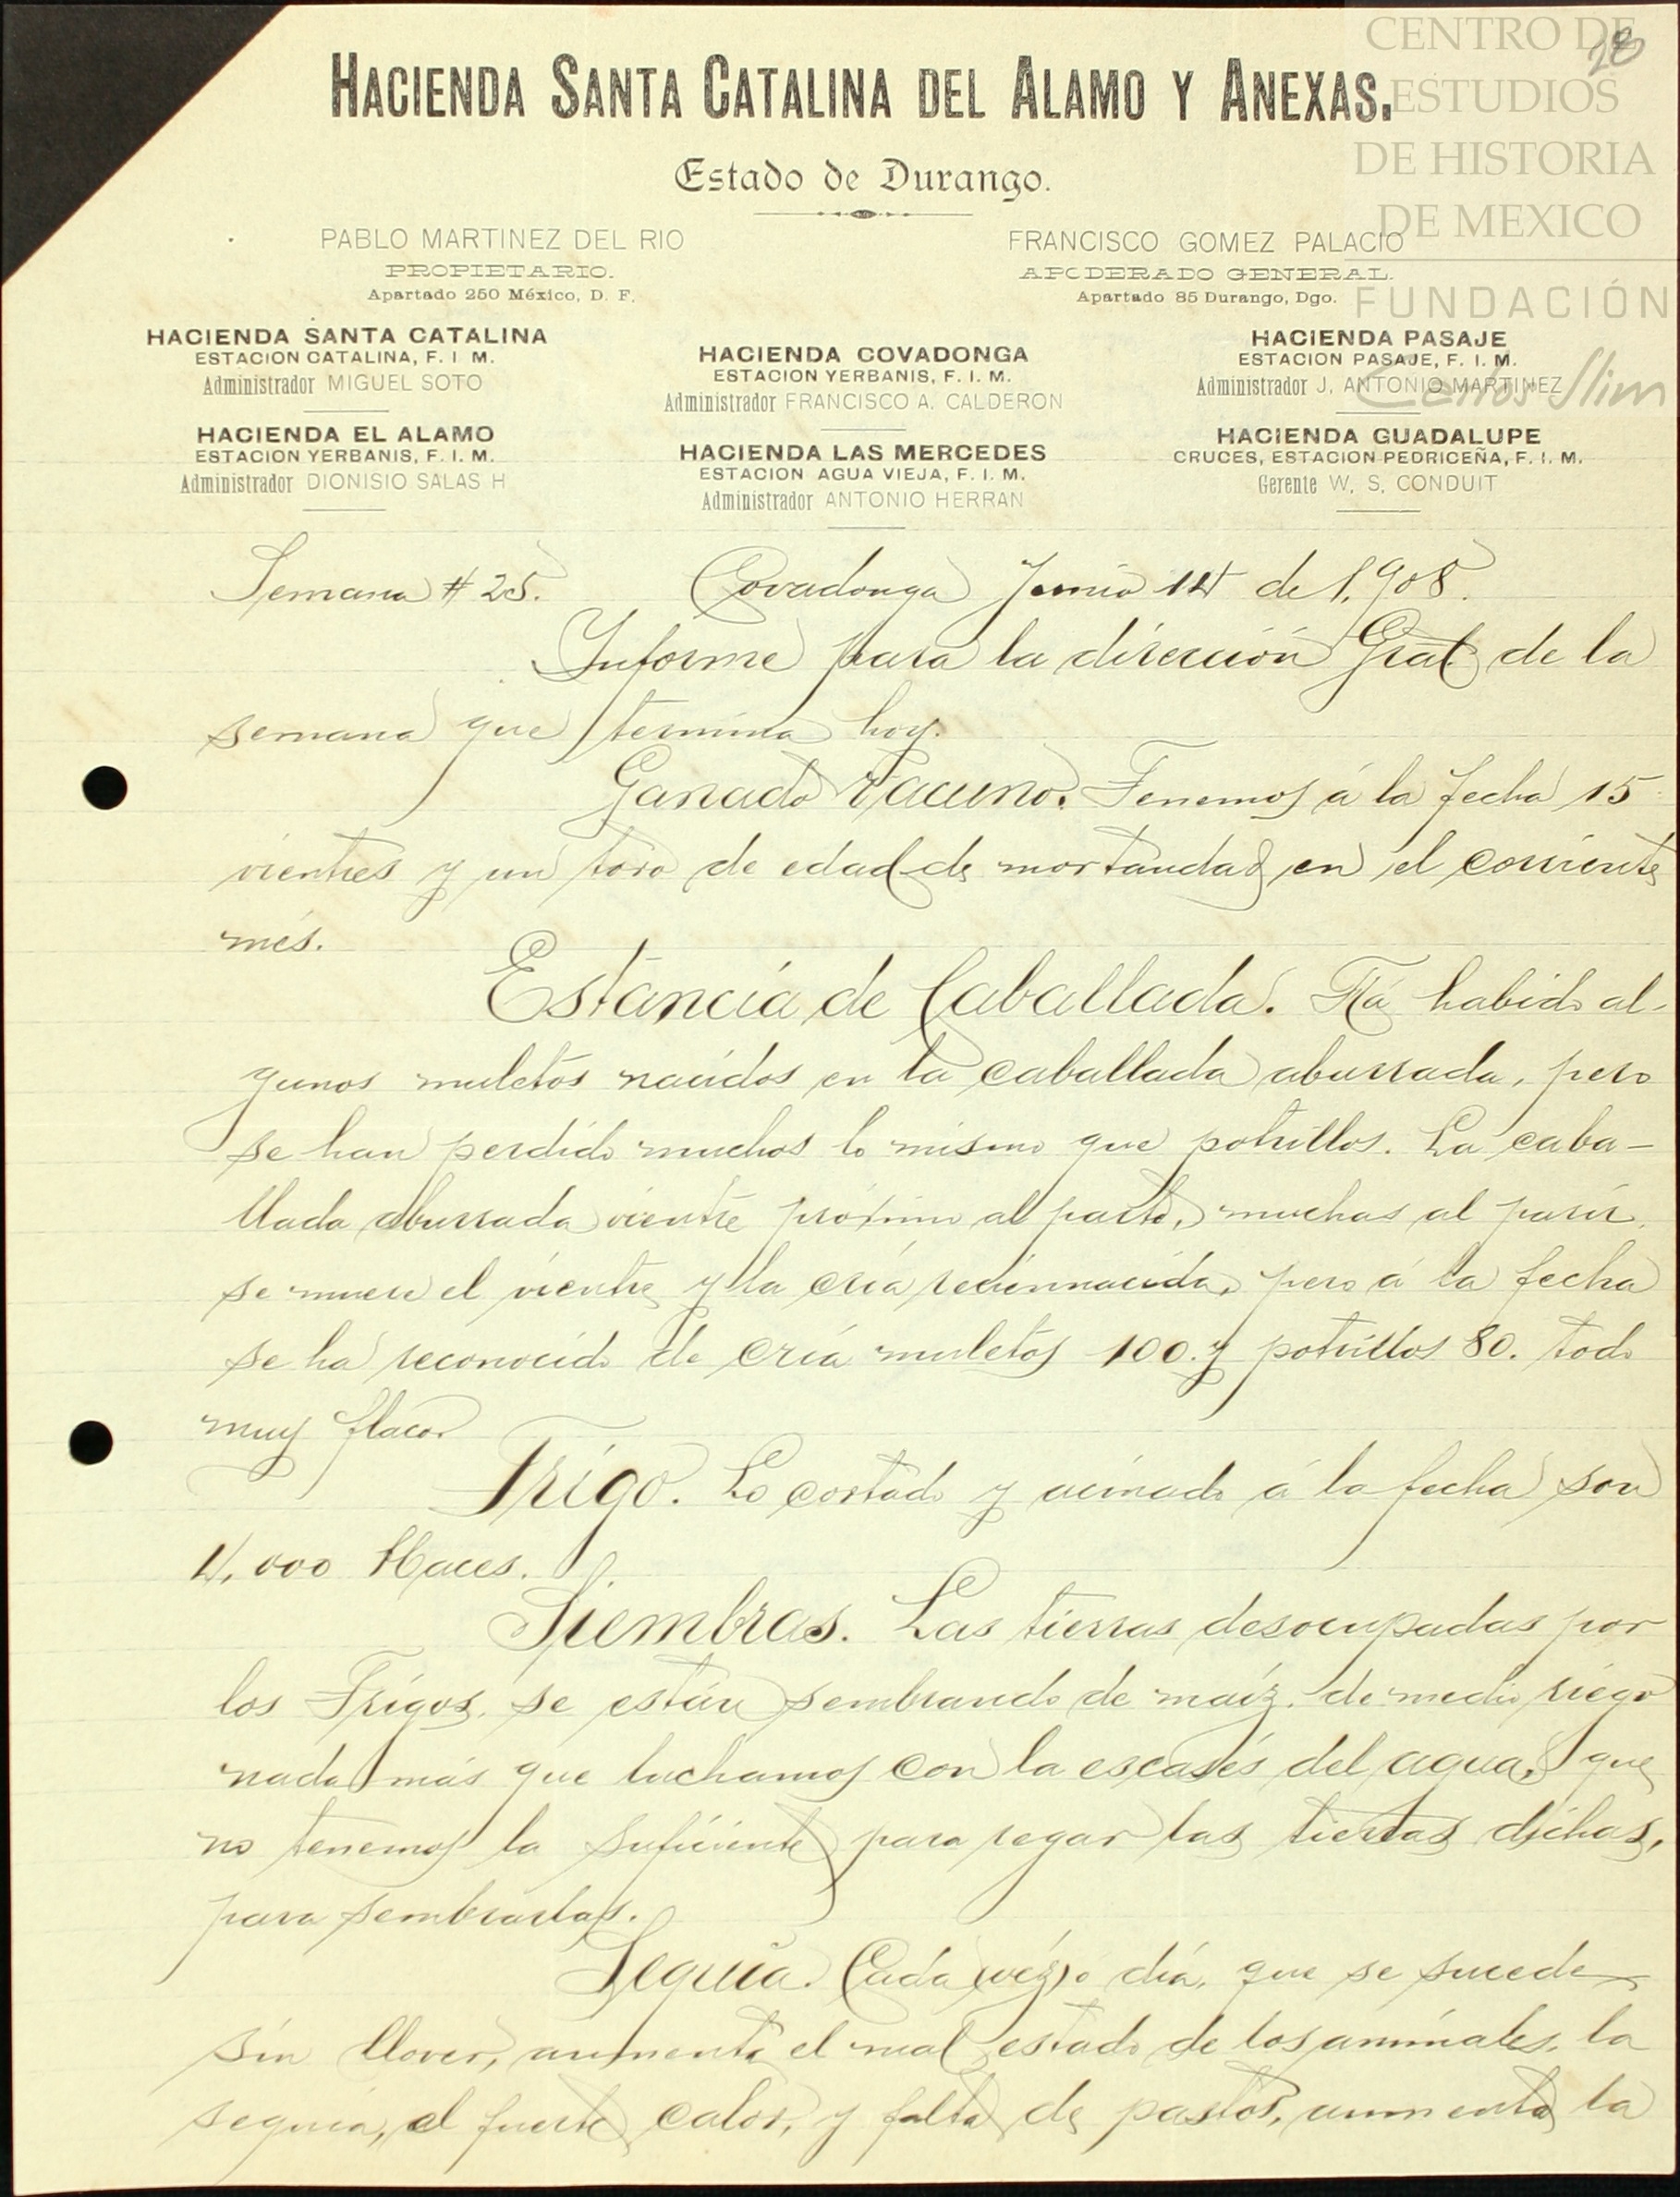 CENTRO DE
ESTUDIOS
DE HISTORIA
DE MEXICO
FUNDACIÓN
Carlos Slim
28
HACIENDA SANTA CATALINA DEL ALAMO Y ANEXAS.
Estado de Durango.
PABLO MARTINEZ DEL RIO
PROPIETARIO.
Apartado 250 México, D. F.
FRANCISCO GOMEZ PALACIO
APODERADO GENERAL.
Apartado 85 Durango, Dgo.
HACIENDA SANTA CATALINA
ESTACION CATALINA, F. I. M.
Administrador MIGUEL SOTO
HACIENDA EL ALAMO
ESTACION YERBANIS, F. I. M.
Administrador DIONISIO SALAS H
HACIENDA COVADONGA
ESTACION YERBANIS, F. I. M.
Administrador FRANCISCO A. CALDERON
HACIENDA LAS MERCEDES
ESTACION AGUA VIEJA, F. I. M.
Administrador ANTONIO HERRAN
HACIENDA PASAJE
ESTACION PASAJE, F. I. M.
Administrador J. ANTONIO MARTINEZ
HACIENDA GUADALUPE
CRUCES, ESTACION PEDRICEÑA, F. I. M.
Gerente W. S. CONDUIT
Semana # 25. Covadonga Junio 14 de 1,908.
Informe para la dirección Gral de la
semana que termina hoy.
Ganado Vacuno. Tenemos á la fecha 15
vientres y un toro de edad de mortandad en el corriente
més.
Estancia de Caballada. Há habido al-
gunos muletos nacidos en la caballada aburrada, pero
se han perdido muchos lo mismo que potrillos. La caba-
llada aburrada vientre próximo al parto, muchas al parir,
se muere el vientre y la cría reciennacida, pero á la fecha
se ha reconocido de cría muletos 100. y potrillos 80. todo
muy flaco.
Trigo. Lo cortado y acinado á la fecha son
4,000 Haces.
Siembras. Las tierras desocupadas por
los Trigos, se están sembrando de maíz, de medio riego
nada más que luchamos con la escasés del agua, que
no tenemos la suficiente para regar las tierras dichas,
para sembrarlas.
Sequía. Cada véz, o día, que se sucede
sin llover, aumenta el mal estado de los animales, la
sequía, el fuerte calor, y falta de pastos, aumenta la